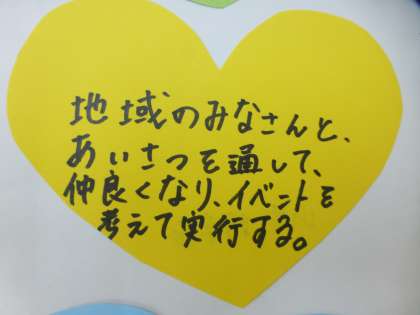 地域のみなさんと、
あいさつを通して、
仲良くなり、イベントを
考えて実行する。